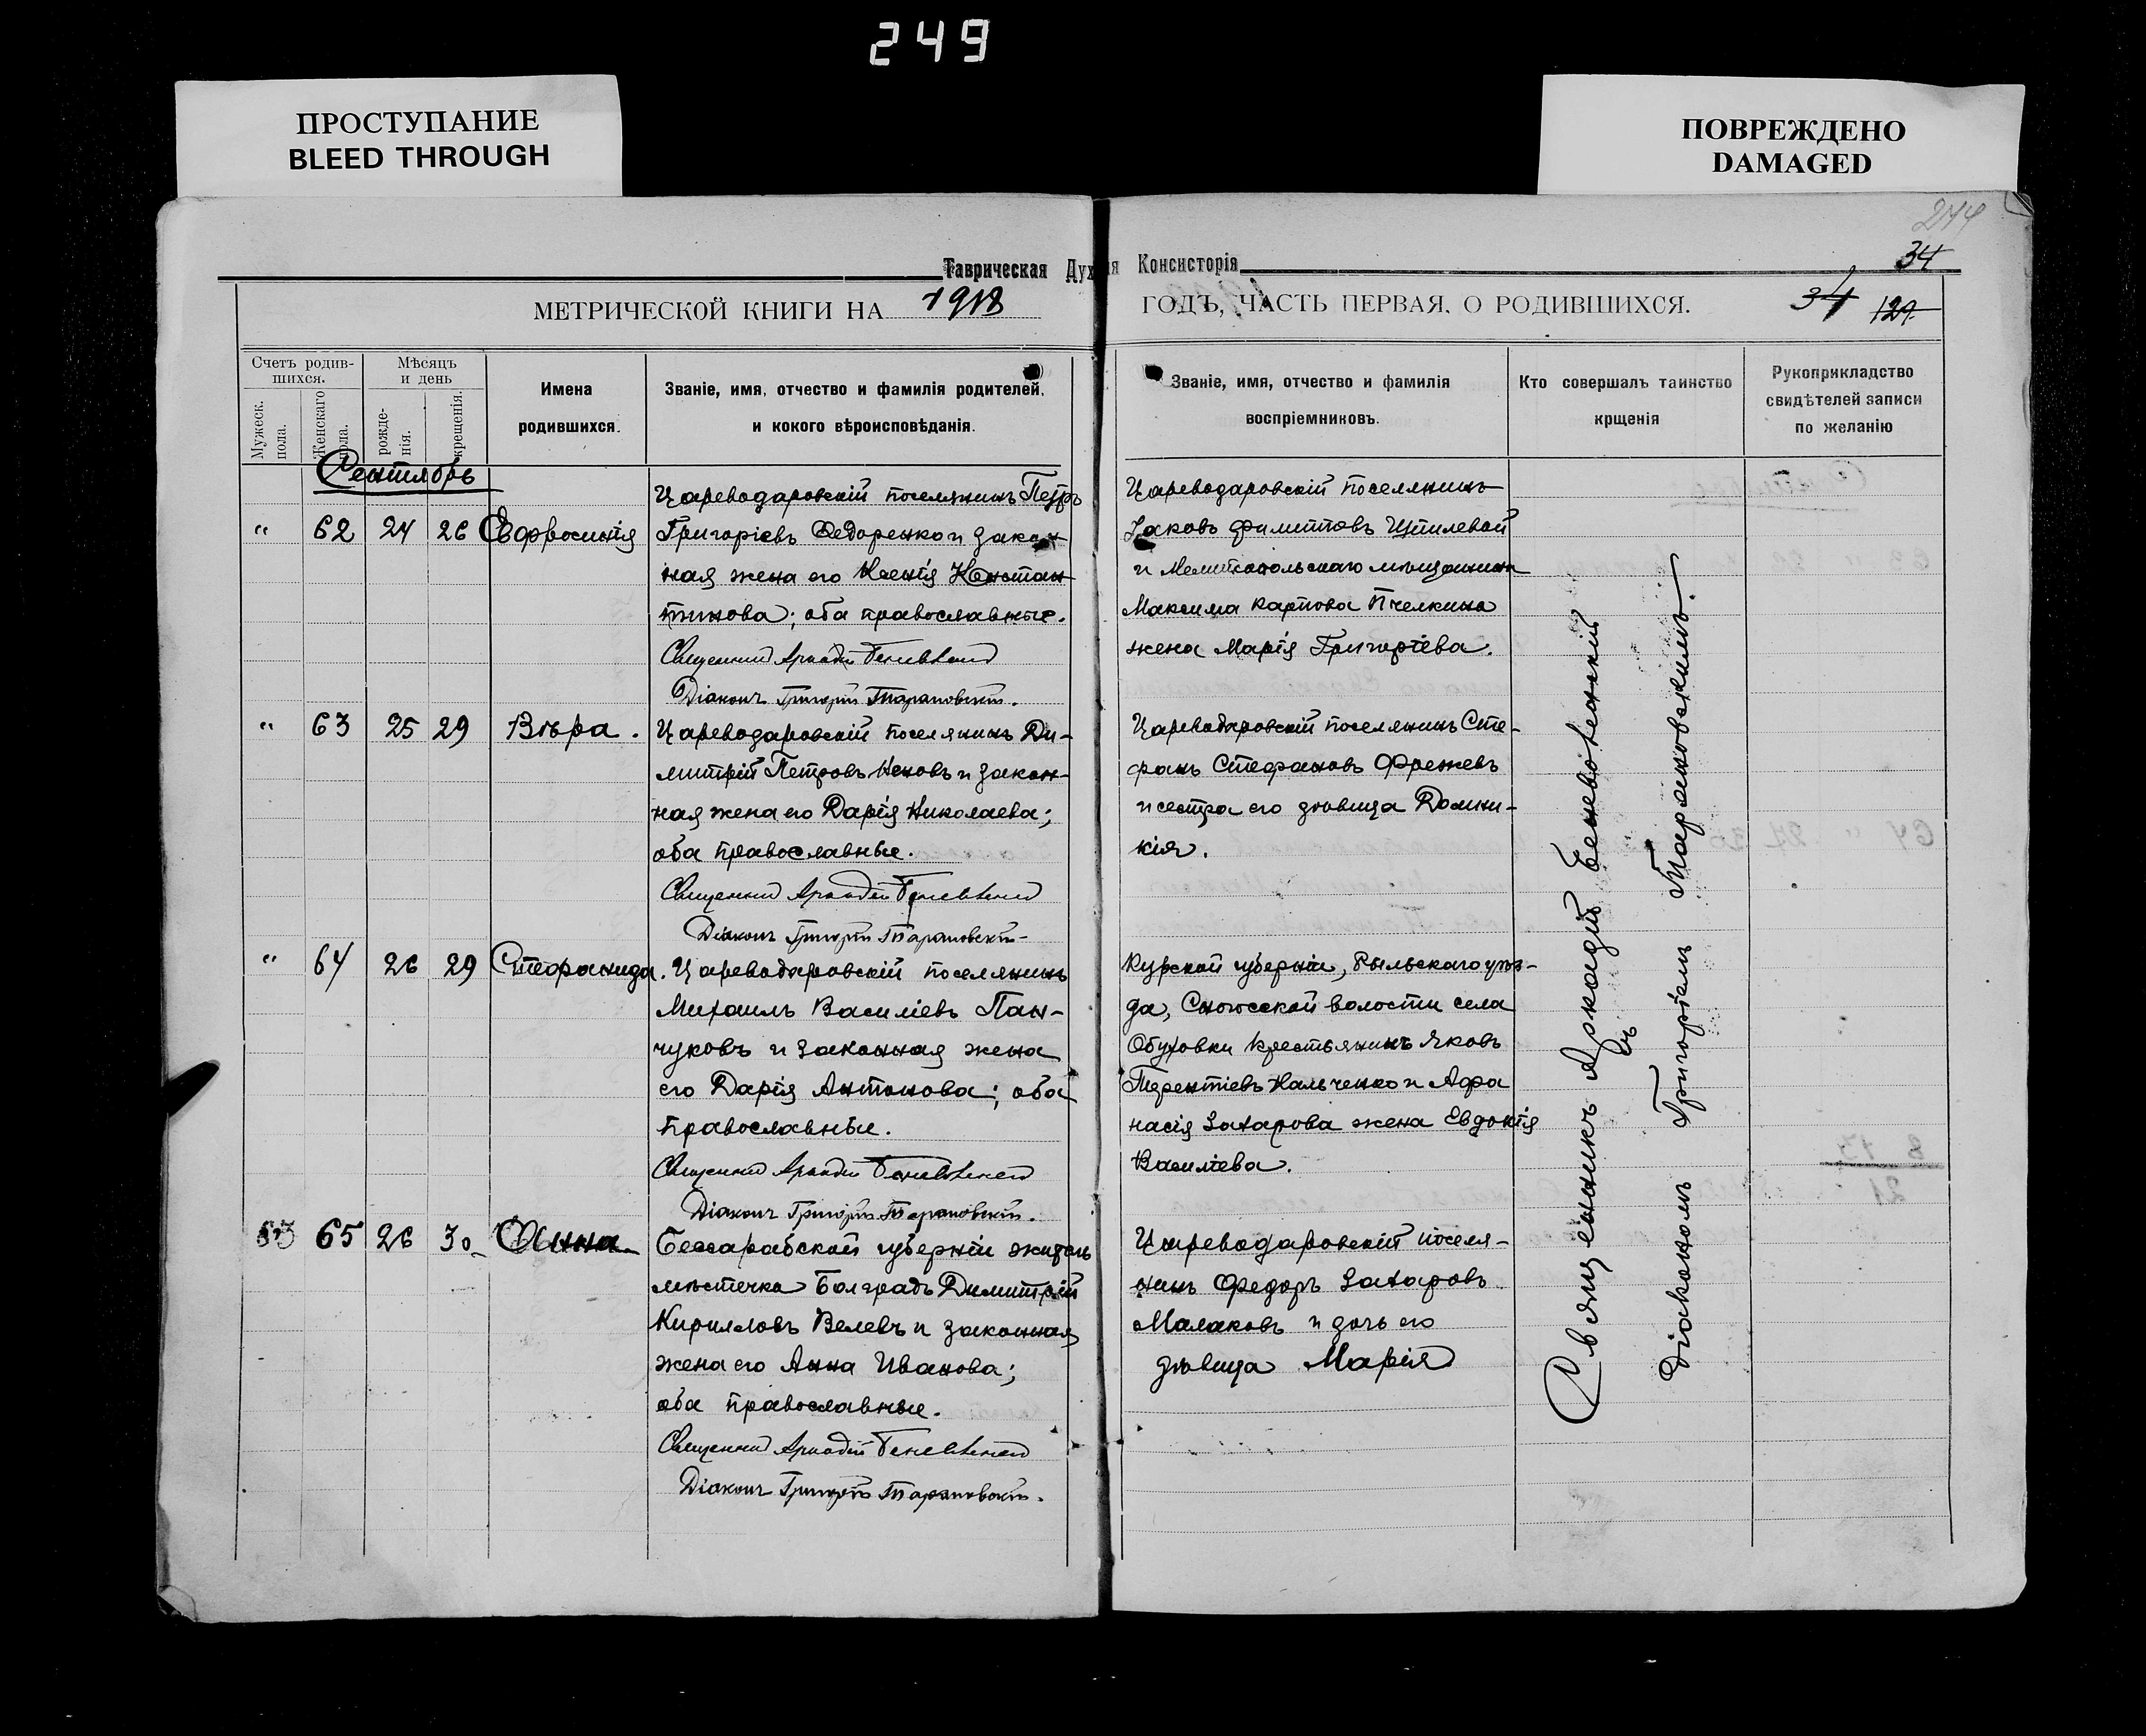 249
ПРОСТУПАНИЕ
BLEED THROUGH
ПОВРЕЖДЕНО
DAMAGED
244
34
Таврическая Дух
ія Консисторія
МЕТРИЧЕСКОЙ КНИГИ НА 1918
ГОДЪ, ЧАСТЬ ПЕРВАЯ, О РОДИВШИХСЯ.
34 129
Счетъ родив-
шихся.
Мужеск.
пола.
Женскаго
пола.
Мѣсяцъ
и день
рожде-
нія.
крещенія.
Имена
родившихся.
Званіе, имя, отчество и фамилія родителей,
и кокого вѣроисповѣданія.
Званіе, имя, отчество и фамилія
воспріемниковъ.
Кто совершалъ таинство
крщенія
Рукоприкладство
свидѣтелей записи
по желанію
Сентябрь
" 62 24 26 Евфросинія
Цареводаровскій поселянинъ Петръ
Григоріевъ Федоренко и закон
ная жена его Ксенія Констан
тинова; оба православные.
Священникъ Аркадій Беневоленскій
Діаконъ Григорій Тарановскій.
Цареводаровскій поселянинъ
Іаковъ Филипповъ Щпилевой
и Мелитопольскаго мѣщанина
Максима Карпова Пчелкина
жена Марія Григоріева.
" 63 25 29 Вѣра.
Цареводаровскій поселянинъ Ди-
митрій Петровъ Неновъ и закон-
ная жена его Дарія Николаева;
оба православные.
Священникъ Аркадій Беневоленскій
Діаконъ Григорій Тарановскій
Цареводаровскій поселянинъ Сте-
фанъ Стефановъ Френевъ
и сестра его дѣвица Домни-
кія.
" 64 26 29 Стефанида.
Цареводаровскій поселянинъ
Михаилъ Василіевъ Пан-
чуковъ и законная жена
его Дарія Антонова; оба
православные.
Священникъ Аркадій Беневоленскій
Діаконъ Григорій Тарановскій.
Курской губерніи, Рыльскаго уѣз-
да, волости села
Обуховки крестьянинъ Яковъ
Терентіевъ Кальченко и Афа
насія Захарова жена Евдокія
Василіева.
65 26 30 Анна
Бессарабской губерніи житель
мѣстечка Болградъ Димитрій
Кирилловъ Велевъ и законная
жена его Анна Иванова;
оба православные.
Священникъ Аркадій Беневоленскій
Діаконъ Григорій Тарановскій.
Цареводаровскій поселя-
нинъ Федоръ Захаровъ
Малаковъ и дочь его
дѣвица Марія
Священникъ Аркадій Беневоленскій
съ
Діакономъ Григоріемъ Тарановскимъ.